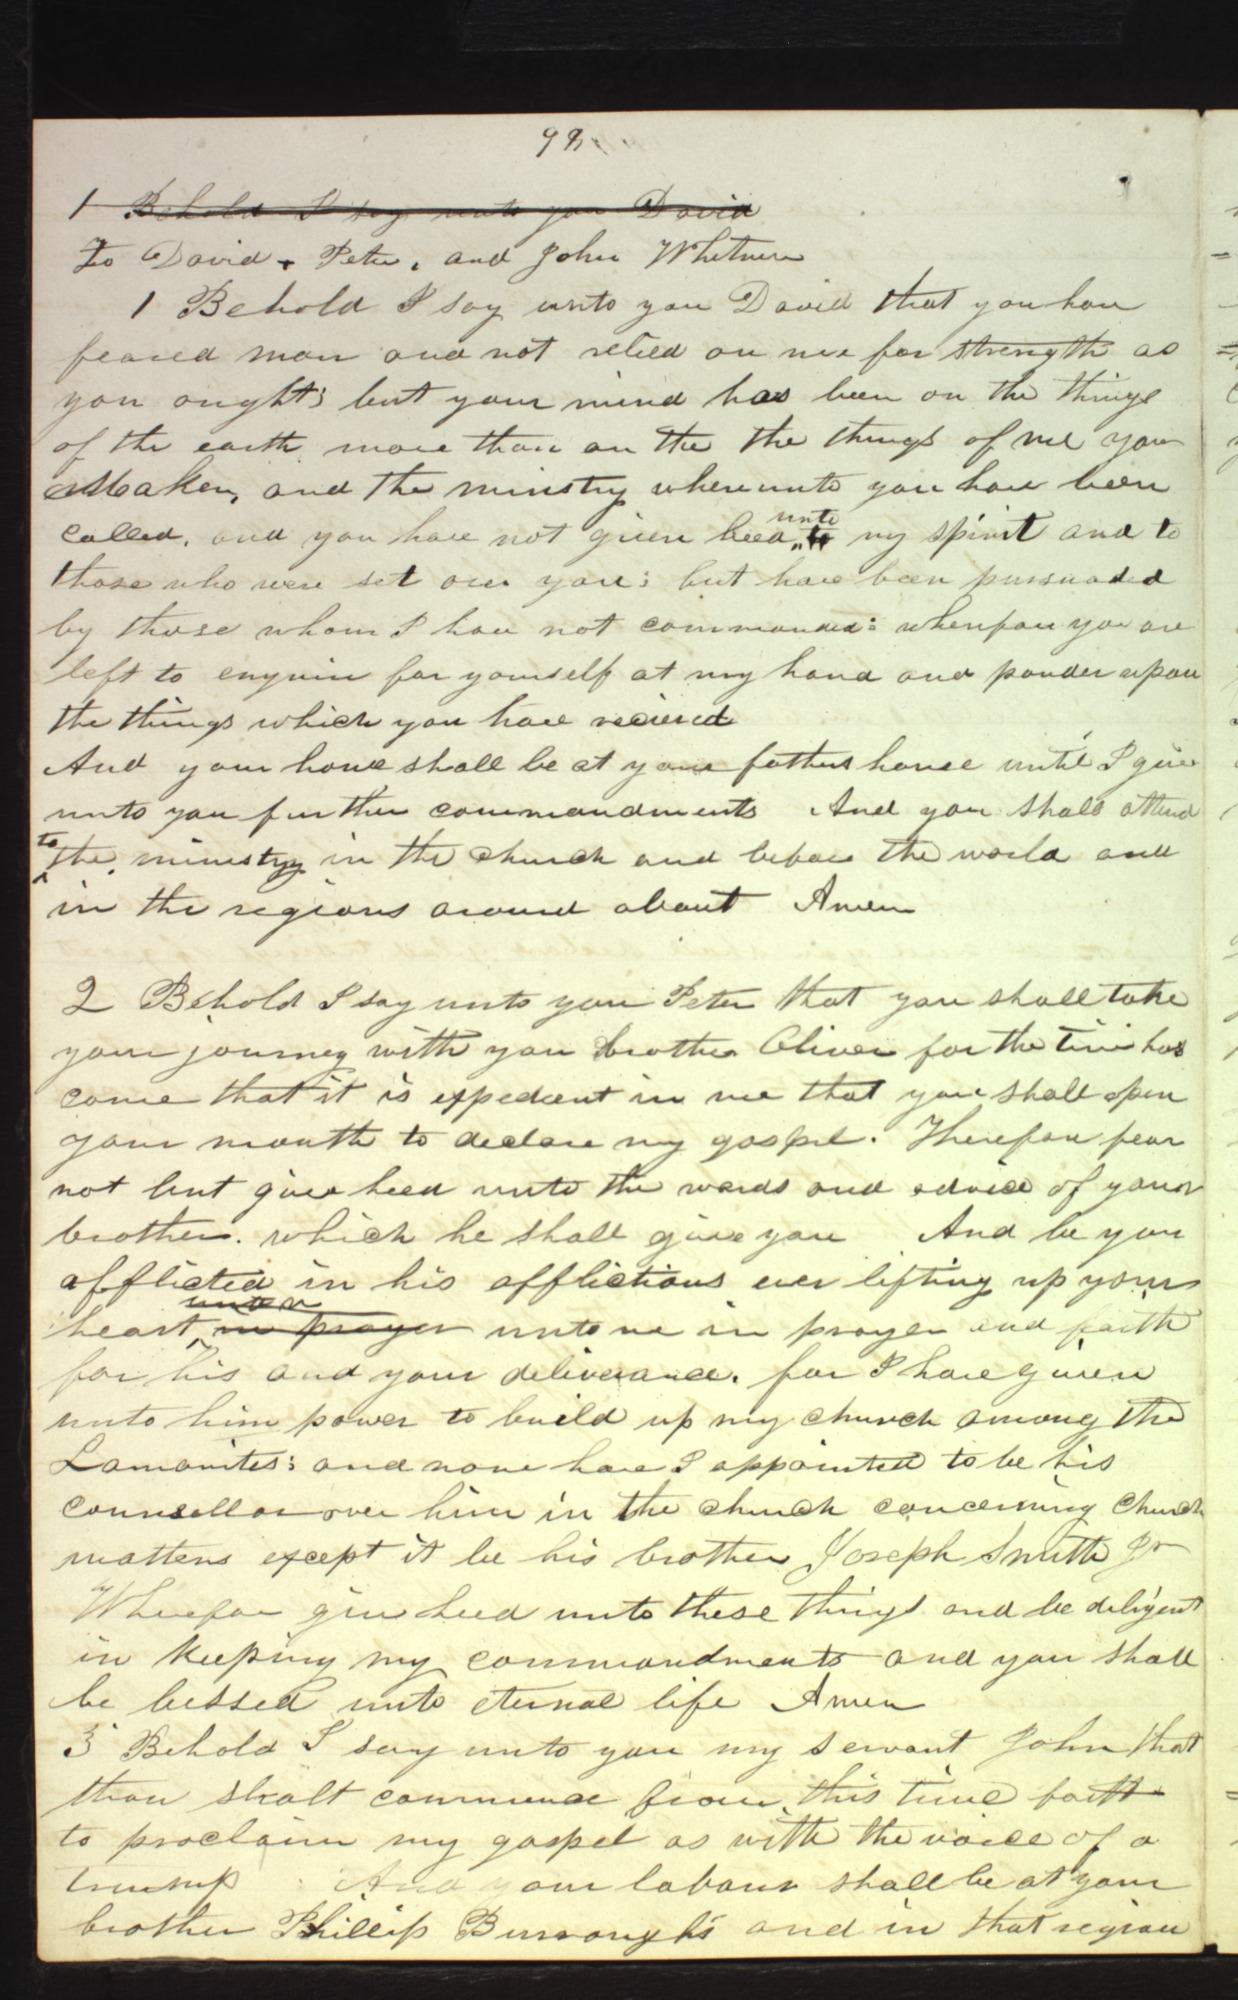 98
1 Behold I say unto you David
To David, Peter, and John Whitmer
1 Behold I say unto you David that you have
feared man and not relied on me for strength as
you ought; but your mind has been on the things
of the earth more than on the the things of me your
Maker, and the ministry whereunto you have been
called, and you have not given heed unto to my spirit and to
those who were set over you; but have been pursuaded
by those whom I have not commanded: wherefore you are
left to enquire for yourself at my hand and ponder upon
the things which you have recieved
And your home shall be at your fathers house until I give
unto you further commandments And you shall attend
to the ministry in the church and before the world and
in the regions around about Amen
2 Behold I say unto you Peter that you shall take
your journey with you brother Oliver for the time has
come that it is expedient in me that you shall open
your mouth to declare my gospel. Therefore fear
not but give heed unto the words and advice of your
brother. which he shall give you And be you
afflicted in his afflictions ever lifting up your
heart in prayer unto me in prayer and faith
for his and your deliverance. for I have given
unto him power to build up my church among the
Lamanites; and none have I appointed to be his
counsellor over him in the church concerning Church
matters except it be his brother Joseph Smith Jr
Wherefore give heed unto these things and be diligent
in keeping my commandments and you shall
be belssed unto eternal life Amen
3 Behold I say unto you my servant John that
thou shalt commence from this time forth
to proclaim my gospel as with the voice of a
trump And your labour shall be at your
brother Phillip Burroughs and in that region